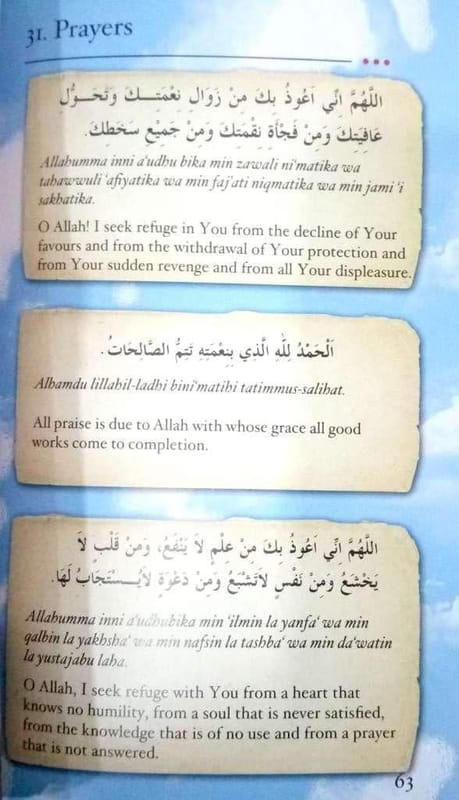 31. Prayers
اللَّهُمَّ اِنِّي اَعُوذُ بِكَ مِنْ زَوَالِ نِعْمَتِـــكَ وَتَحَـــوُّلِ
عَافِيَتِكَ وَمِنْ فَجْأَةِ نِقْمَتِكَ وَمِنْ جَمِيْعِ سَخَطِكَ.
Allahumma inni a'udhu bika min zawali ni'matika wa
tahawwuli 'afiyatika wa min faj'ati niqmatika wa min jami 'i
sakhatika.
O Allah! I seek refuge in You from the decline of Your
favours and from the withdrawal of Your protection and
from Your sudden revenge and from all Your displeasure.
اَلْحَمْدُ لِلّٰهِ الَّذِي بِنِعْمَتِهِ تَتِمُّ الصَّالِحَاتُ.
Alhamdu lillahil-ladhi bini'matihi tatimmus-salihat.
All praise is due to Allah with whose grace all good
works come to completion.
اللَّهُمَّ اِنِّي اَعُوذُ بِكَ مِنْ عِلْمٍ لاَ يَنْفَعُ، وَمِنْ قَلْبٍ لاَ
يَخْشَعُ وَمِنْ نَفْسٍ لاَتَشْبَعُ وَمِنْ دَعْوَةٍ لاَيُـــسْتَجَابُ لَهَا.
Allahumma inni a'udhubika min 'ilmin la yanfa' wa min
qalbin la yakhsha' wa min nafsin la tashba' wa min da'watin
la yustajabu laha.
O Allah, I seek refuge with You from a heart that
knows no humility, from a soul that is never satisfied,
from the knowledge that is of no use and from a prayer
that is not answered.
63